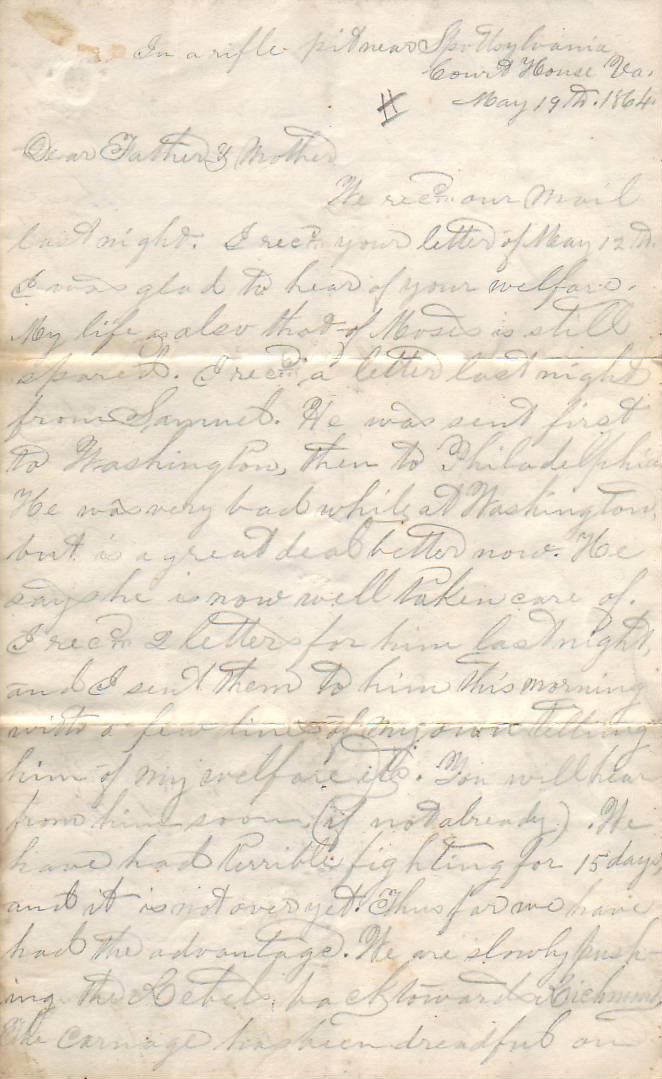 In a rifle pit near Spottsylvania
Court House Va.
May 19th. 1864.
H
Dear Father & Mother
We recd. our mail
last night. I recd. your letter of May 12th.
I was glad to hear of your welfare.
My life as also that of Moses is still
spared. I recd. a letter last night
from Samuel. He was sent first
to Washington, then to Philadelphia
He was very bad while at Washington,
but is a great deal better now. He
says he is now well taken care of.
I recd. 2 letters for him last night,
and I sent them to him this morning
with a few lines of my own telling
him of my welfare etc. You will hear
from him soon, (if not already.) We
have had terrible fighting for 15 days,
and it is not over yet. Thus far we have
had the advantage. We are slowly push-
ing the Rebels back toward Richmond,
The carnage has been dreadful on